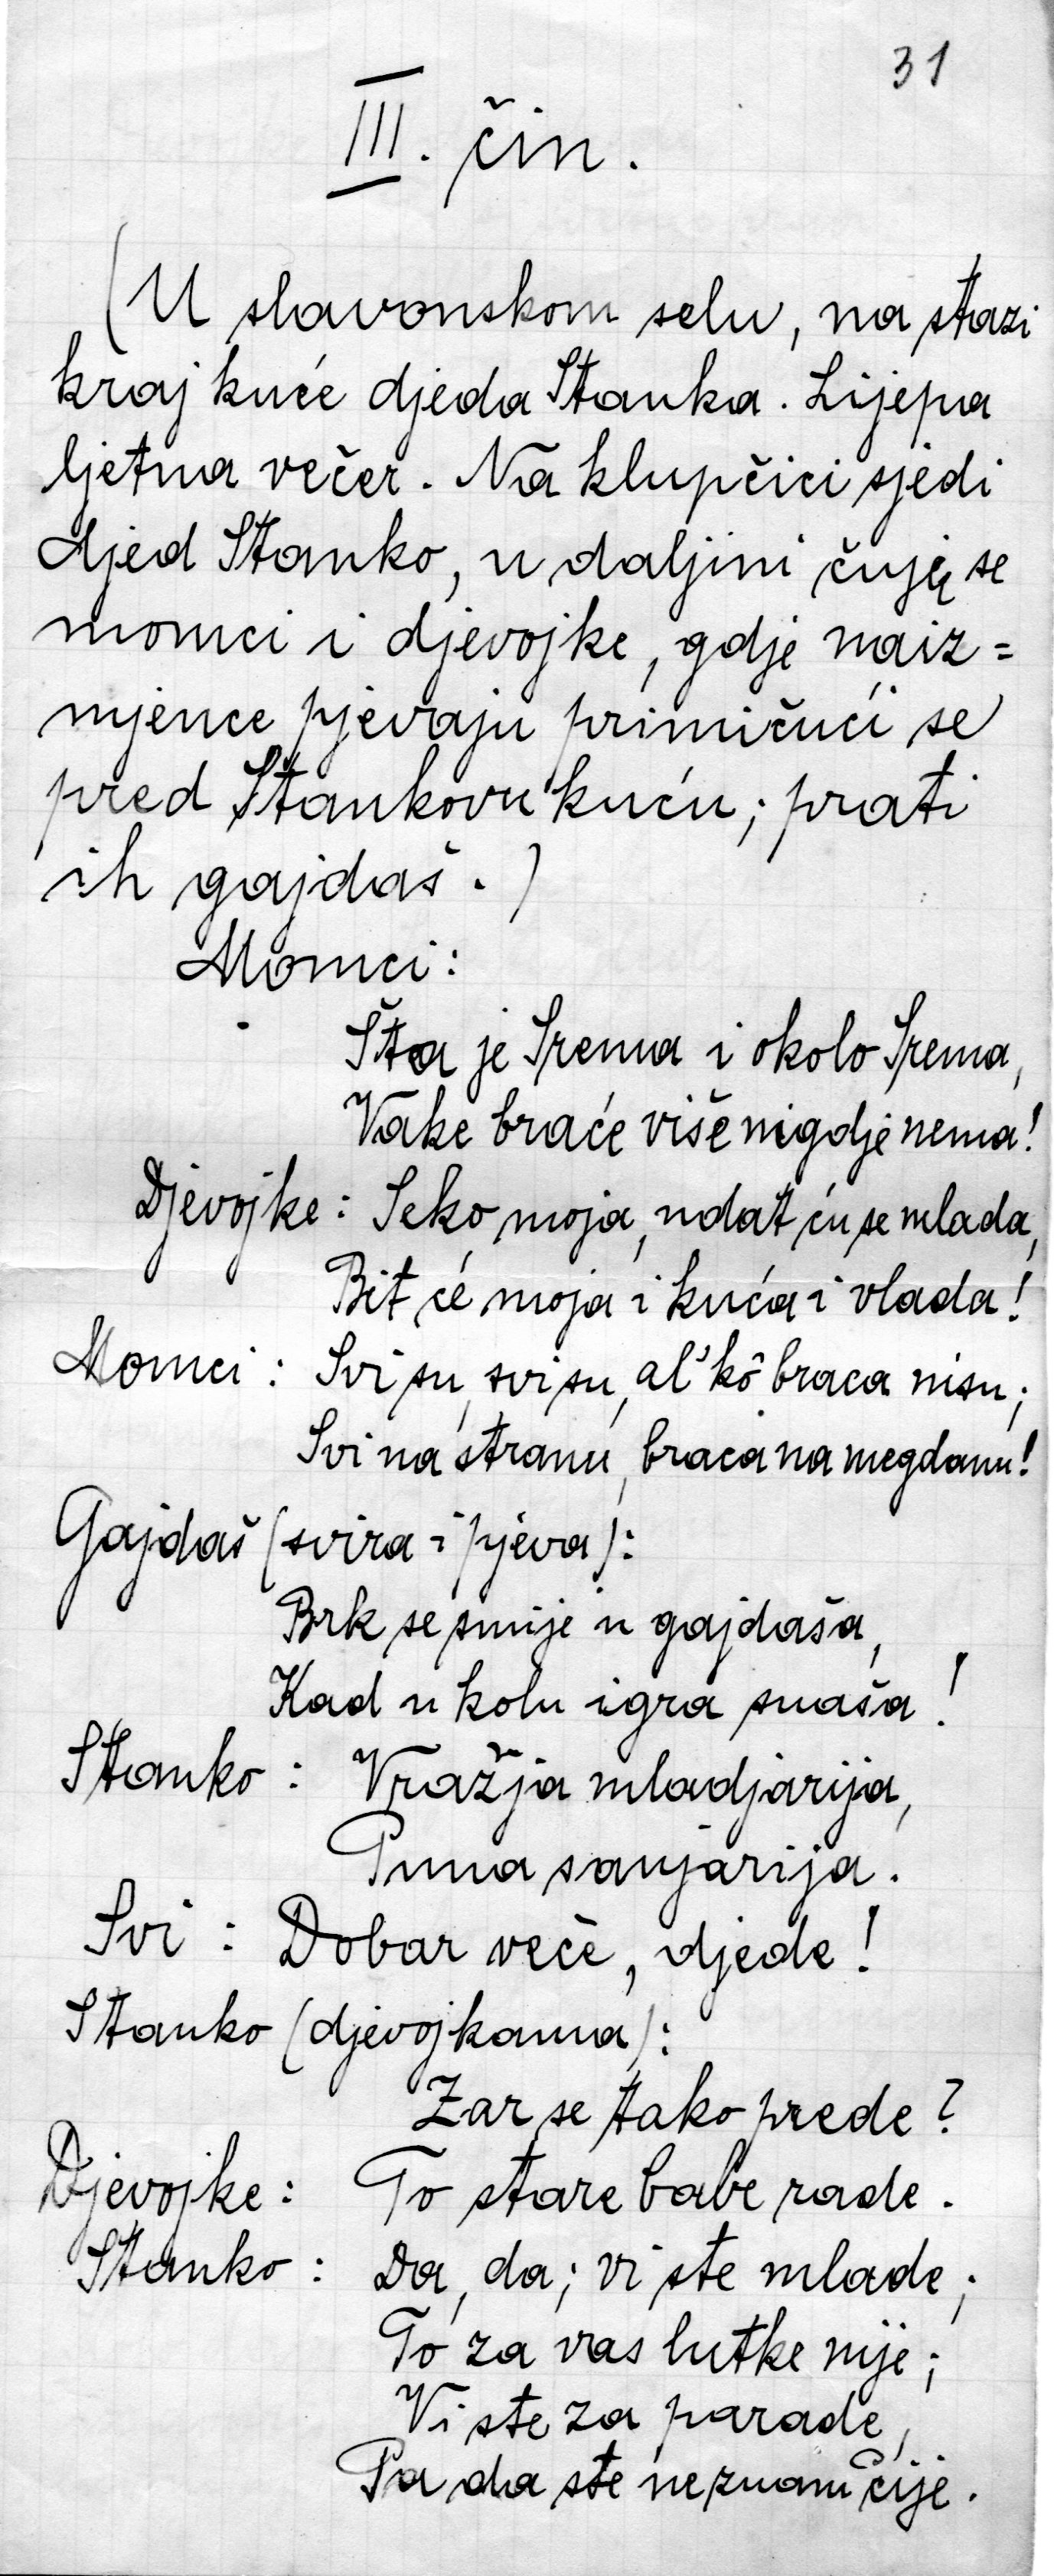 31
III. čin.
(U slavonskom selu, na stazi
kraj kuće djeda Stanka. Lijepa
ljetna večer. Na klupčici sjedi
djed Stanko, u daljini čuje se
momci i djevojke, gdje naiz=
mjence pjevaju primičući se
pred Stankovu kuću; prati
ih gajdaš.)
Momci:
Šta je Srema i okolo Srema,
Vake braće više nigdje nema!
Djevojke: Seko moja, udat ću se mlada,
Bit će moja i kuća i vlada!
Momci: Svi su, svi su, al' kô braca nisu;
Svi na stranu, braca na megdanu!
Gajdaš (svira i pjeva):
Brk se smije u gajdaša,
Kad u kolu igra snaša!
Stanko: Vražja mladjarija,
Puna sanjarija.
Svi: Dobar veče, djede!
Stanko (djevojkama):
Zar se tako prede?
Djevojke: To stare babe rade.
Stanko: Da, da; vi ste mlade;
To za vas lutke nije;
Vi ste za parade,
Pa da ste neznam čije.